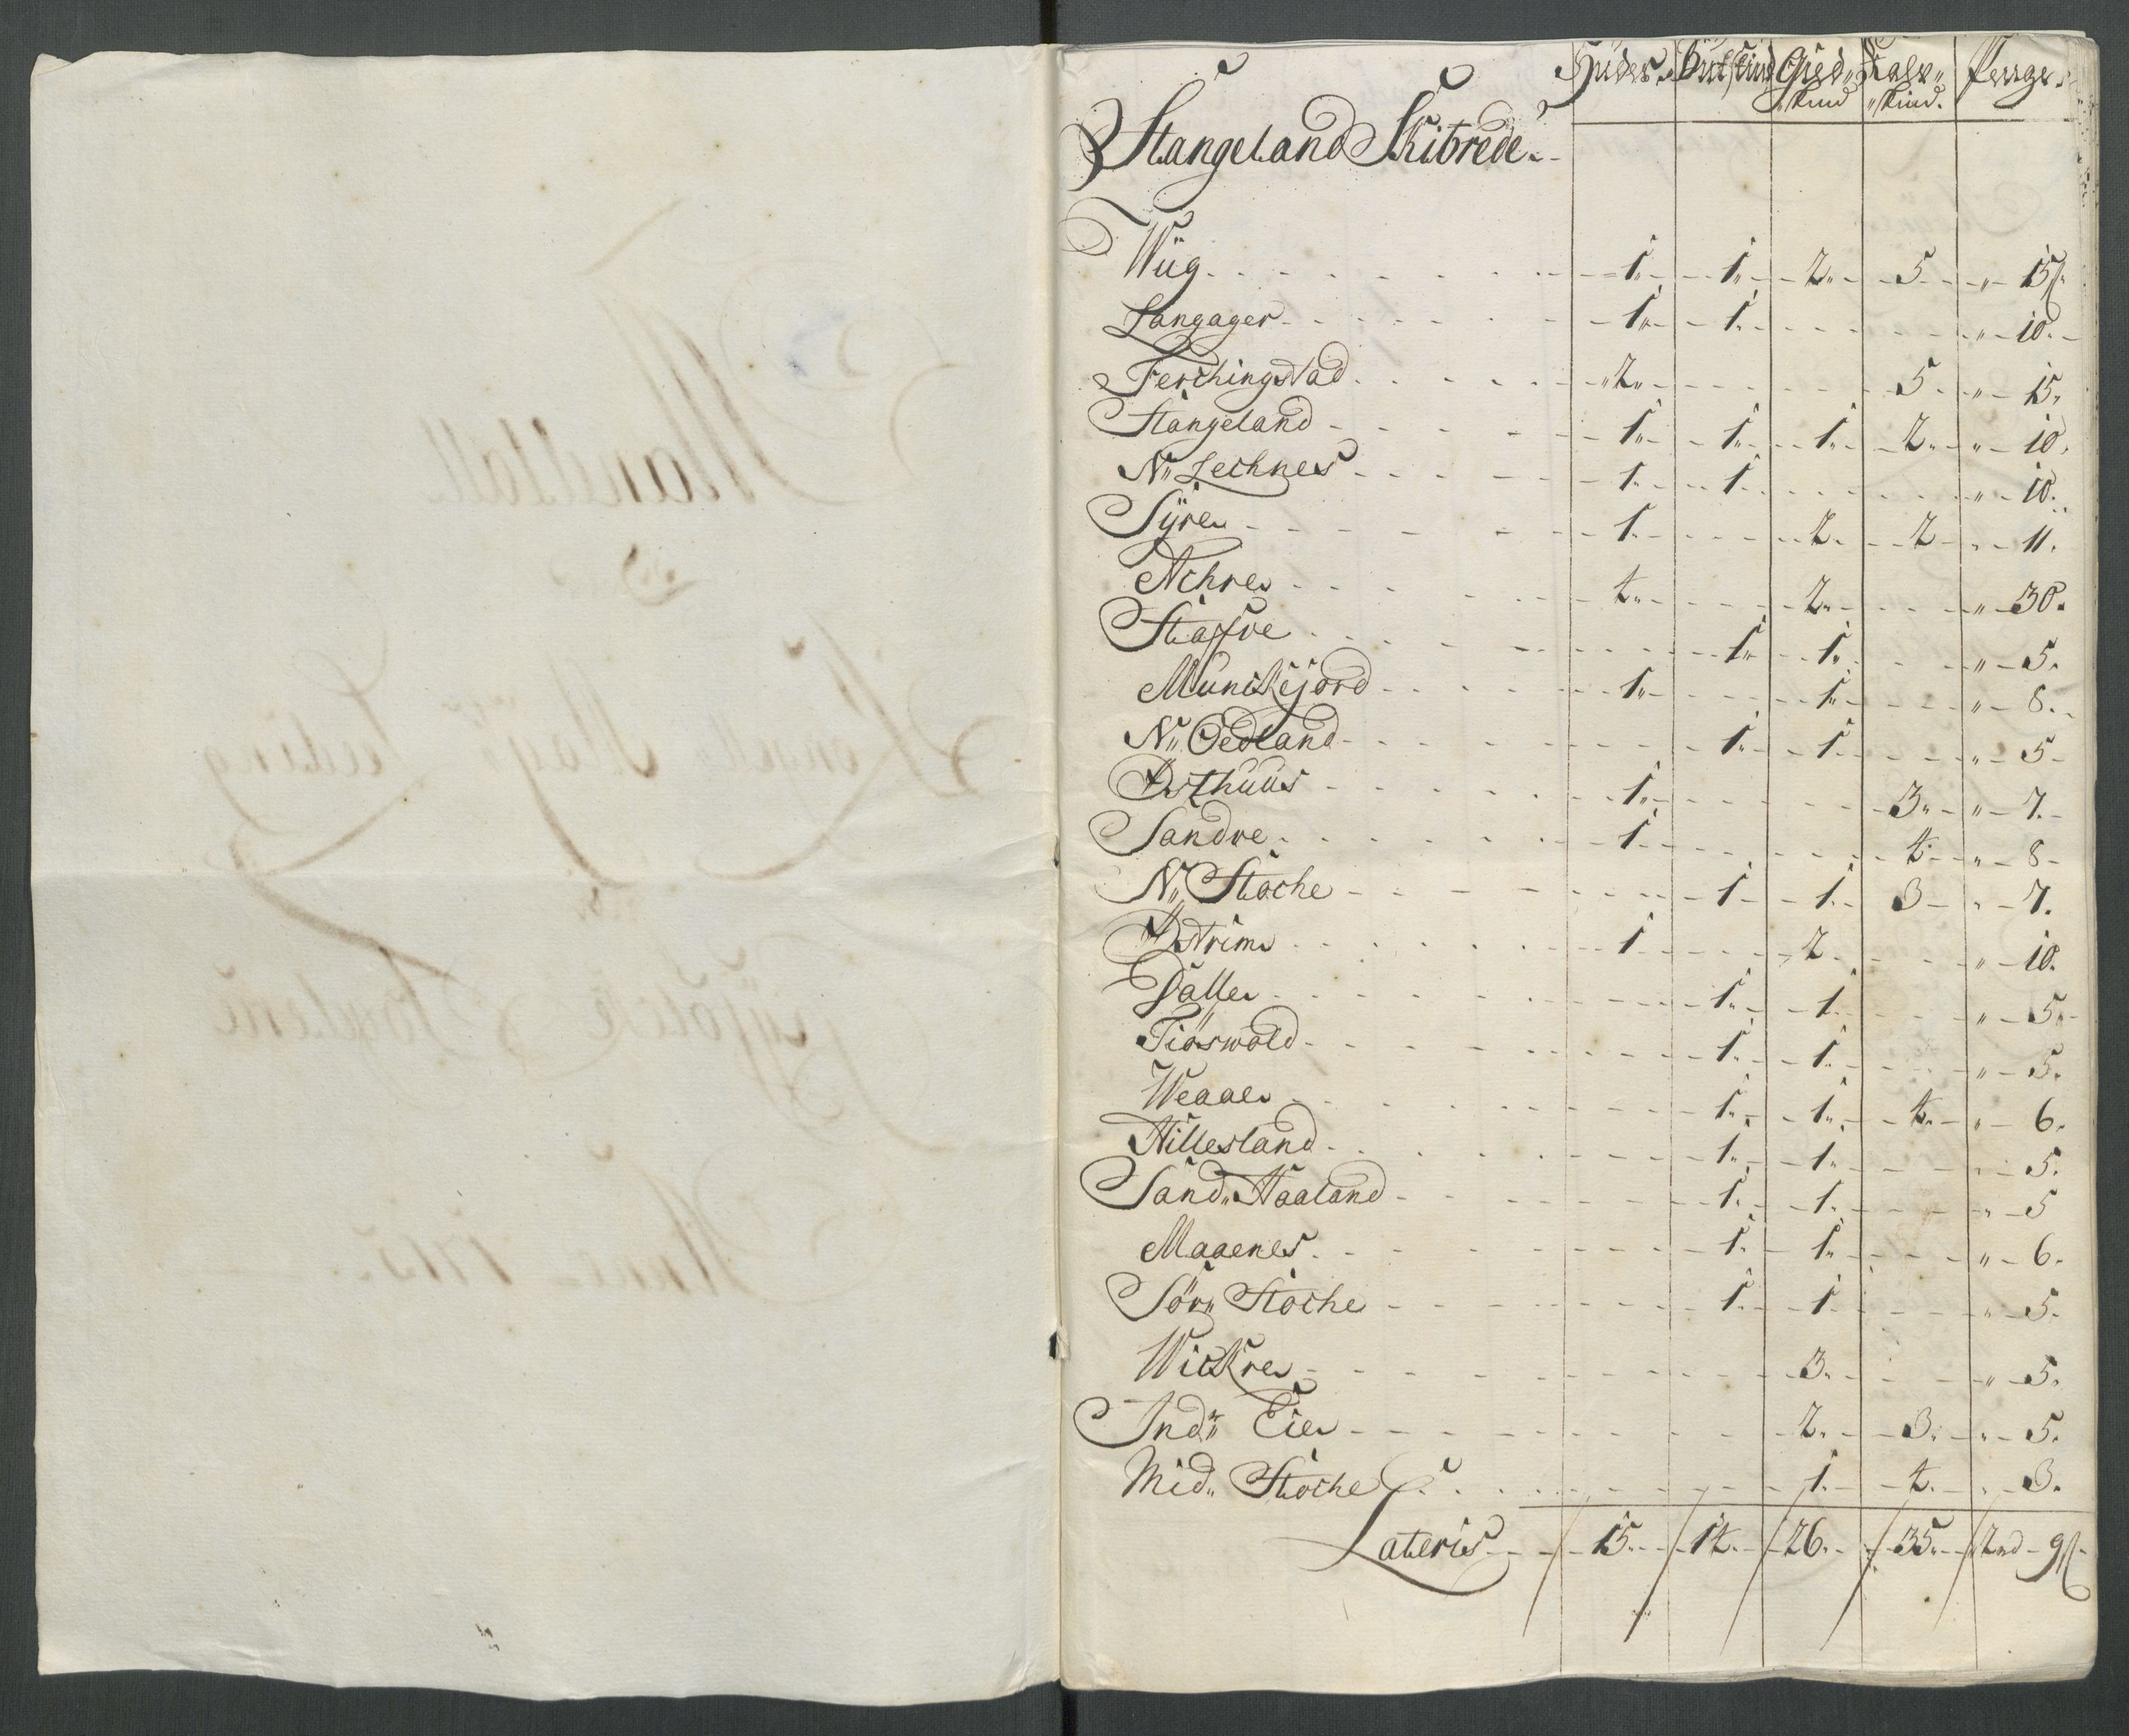 Huder Bukskind Gied Kalv Penge
skind skind
Stangeland Skibrede
Wiig 1 1 2 5 " 15ß
Langager 1 1 " 10
Ferchingstad 2 5 " 15
Stangeland 1 1 1 2 " 10
N" Lechnes 1 1 " 10
Syre 1 2 2 " 11
Achre 4 2 " 30
Staffre 1 1 " 5
Munckejord 1 1 " 8
N" Oedland 1 1 " 5
Østhuus 1 3 " 7
Sandve 1 4 " 8
N" Stoche 1 1 3 " 7
Østrim 1 2 " 10
Dalle 1 1 " 5
Tioswold 1 1 " 5
Weaae 1 1 4 " 6
Hillesland 1 1 " 5
Sand" Haaland 1 1 " 5
Maaenes 1 1 " 6
Sør" Stoche 1 1 " 5
Wickre 3 " 5
Ind" Eie 2 3 " 5
Mid" Stoche 1 4 " 3
Lateris 15 14 26 35 2rd 9ß